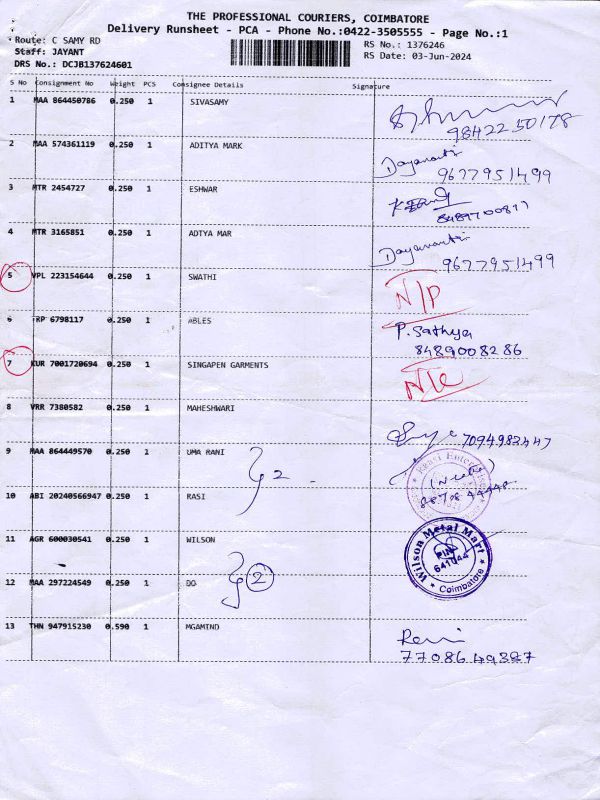 THE PROFESSIONAL COURIERS, COIMBATORE
Delivery Runsheet - PCA - Phone No.:0422-3505555 - Page No.:1
Route: C SAMY RD
RS No.: 1376246
Staff: JAYANT
RS Date: 03-Jun-2024
DRS No.: DCJB137624601
S No Consignment No Weight PCS Consignee Details Signature
1 MAA 864450786 0.250 1 SIVASAMY
98422 50178
2 MAA 574361119 0.250 1 ADITYA MARK
Dayananth
9677951499
3 MTR 2454727 0.250 1 ESHWAR
4 MTR 3165851 0.250 1 ADTYA MAR
Dayananth
9677951499
5 VPL 223154644 0.250 1 SWATHI N/P
6 TRP 6798117 0.250 1 ABLES P. Sathya
8489008286
7 KUR 7001720694 0.250 1 SINGAPEN GARMENTS
8 VRR 7380582 0.250 1 MAHESHWARI
9 MAA 864449570 0.250 1 UMA RANI
10 ABI 20240566947 0.250 1 RASI
11 AGR 600030541 0.250 1 WILSON
Wilson Metal Mart
PIN
641044
* Coimbatore *
12 MAA 297224549 0.250 1 DO
2
13 THN 947915230 0.590 1 MGAMIND